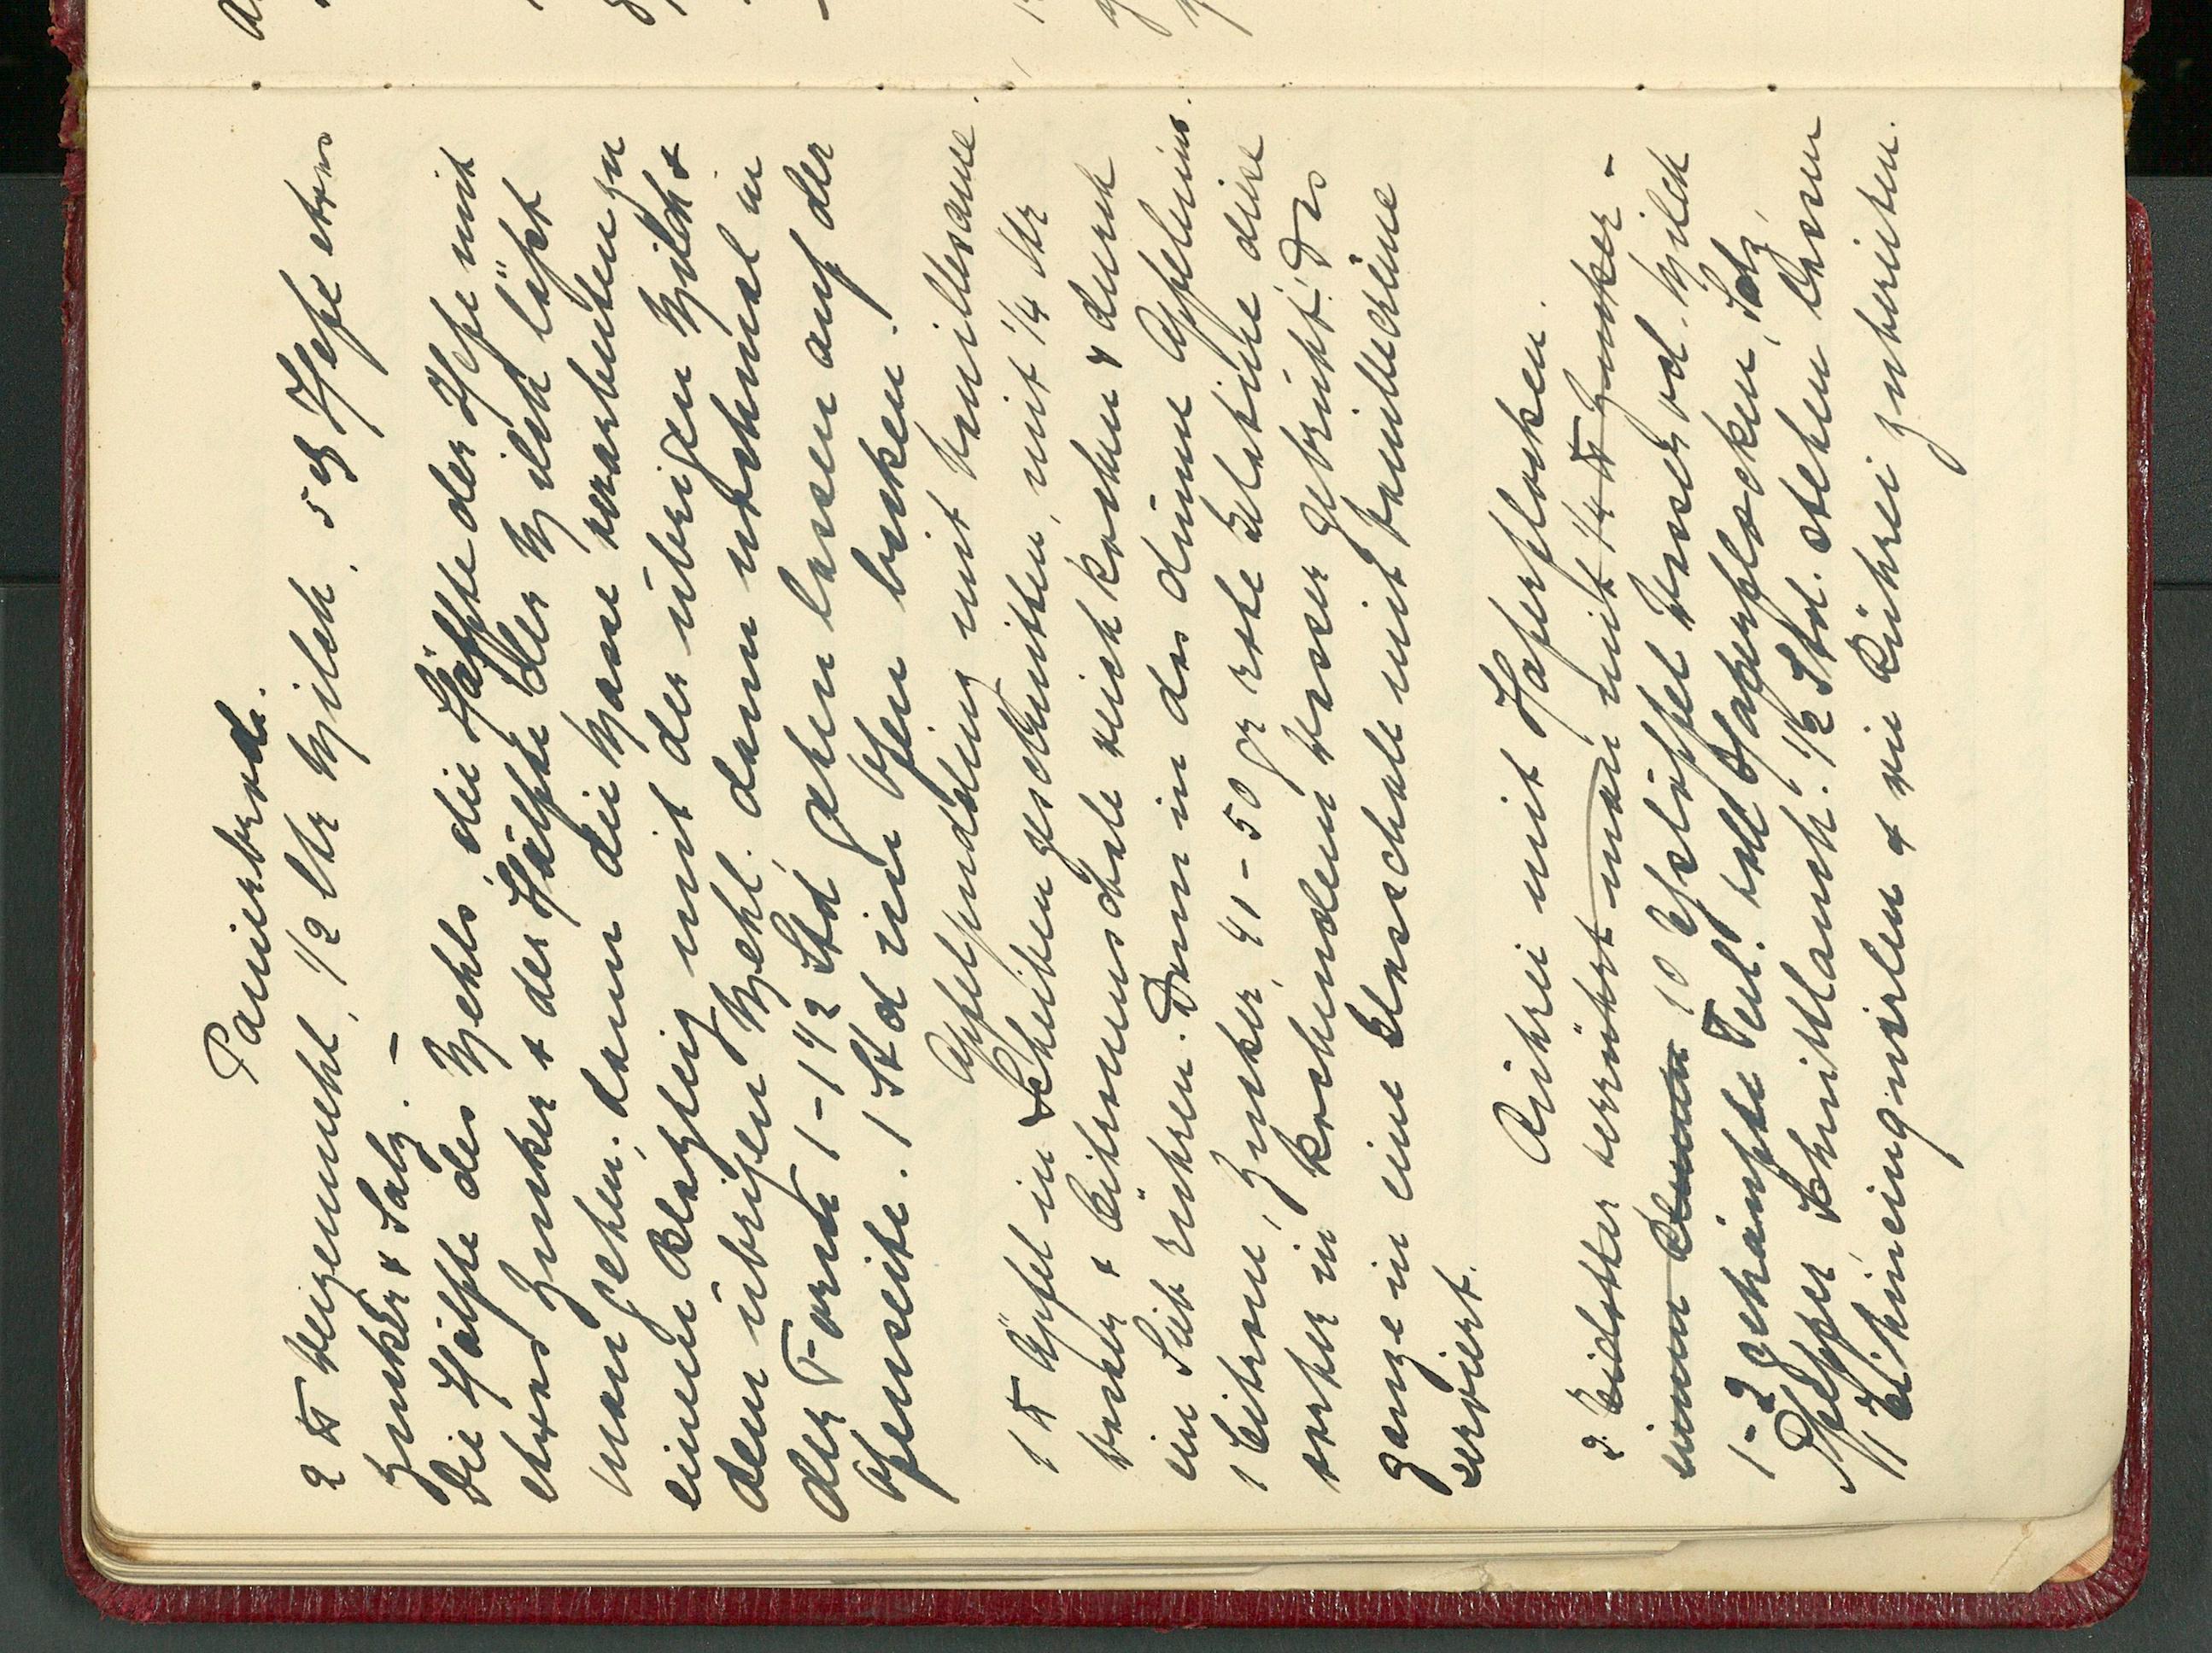 Panierbrod.
2 ℔ Weizenmehl, 1/2 Ltr Milch, 5 ₰ Hefe etwas
Zucker & Salz. –
Die Hälfte des Mehls, die Hälfte der Hefe mit
etwas Zucker & der Hälfte der Milch läßt
man gehen, dann die Masse verarbeiten zu
einem Kloßteig mit der übrigen Milch &
dem übrigen Mehl. dann nochmal in
der Form 1-1 1/2 Std gehen lassen auf der
Ofenseite. 1 Std im Ofen backen!
Apfelpudding mit Vanillesauce.
1 ℔ Äpfel in Scheiben geschnitten, mit 1/4 Ltr
Wasser & Citronenschale weich kochen & durch
ein Sieb rühren. Dann in das dünne Apfelmus
1 Citrone, Zucker, 41-50 gr rote Gelatine diese
vorher in kochendem Wasser gebrüht. Das
ganze in eine Glasschale mit Vanillecrème
serviert.
Rührei mit Haferflocken.
2 Eidotter verrührt man mit 1/4 ℔ Zucker –
einem 10 Eßlöffel Wasser od. Milch
1-2 gehäufte Teel. voll Haferflocken, Salz,
Pfeffer, Schnittlauch. 1/2 Std. stehen lassen
1 Ei hineinquirlen & wie Rührei zubereiten.